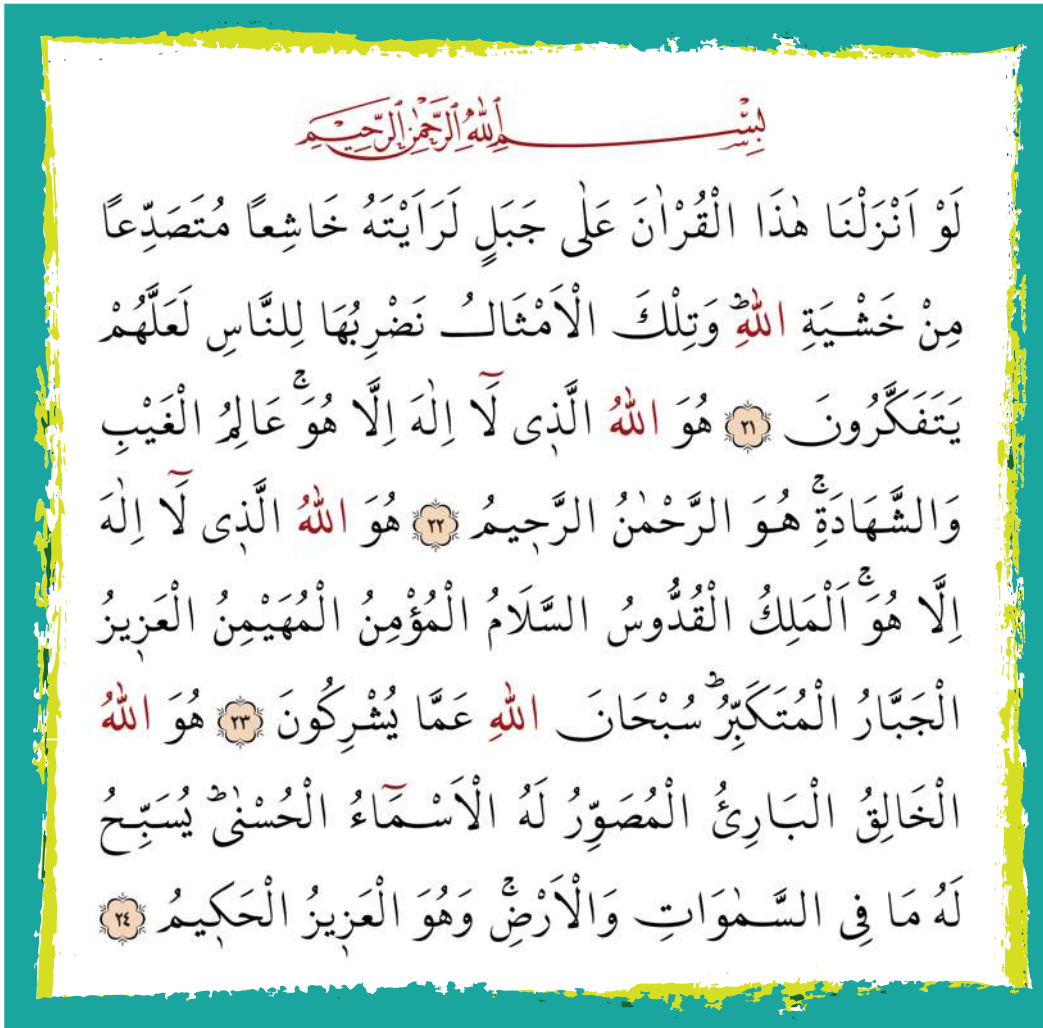 بِسْمِ اللّٰهِ الرَّحْمٰنِ الرَّحِيمِ
لَوْ اَنْزَلْنَا هٰذَا الْقُرْاٰنَ عَلٰى جَبَلٍ لَرَاَيْتَهُ خَاشِعاً مُتَصَدِّعاً
مِنْ خَشْيَةِ اللّٰهِۜ وَتِلْكَ الْاَمْثَالُ نَضْرِبُهَا لِلنَّاسِ لَعَلَّهُمْ
يَتَفَكَّرُونَ ﴿٢١﴾ هُوَ اللّٰهُ الَّذ۪ى لَٓا اِلٰهَ اِلَّا هُوَۚ عَالِمُ الْغَيْبِ
وَالشَّهَادَةِۚ هُوَ الرَّحْمٰنُ الرَّح۪يمُ ﴿٢٢﴾ هُوَ اللّٰهُ الَّذ۪ى لَٓا اِلٰهَ
اِلَّا هُوَۚ اَلْمَلِكُ الْقُدُّوسُ السَّلَامُ الْمُؤْمِنُ الْمُهَيْمِنُ الْعَز۪يزُ
الْجَبَّارُ الْمُتَكَبِّرُۜ سُبْحَانَ اللّٰهِ عَمَّا يُشْرِكُونَ ﴿٢٣﴾ هُوَ اللّٰهُ
الْخَالِقُ الْبَارِئُ الْمُصَوِّرُ لَهُ الْاَسْمَٓاءُ الْحُسْنٰىۜ يُسَبِّحُ
لَهُ مَا فِى السَّمٰوَاتِ وَالْاَرْضِۚ وَهُوَ الْعَز۪يزُ الْحَك۪يمُ ﴿٢٤﴾